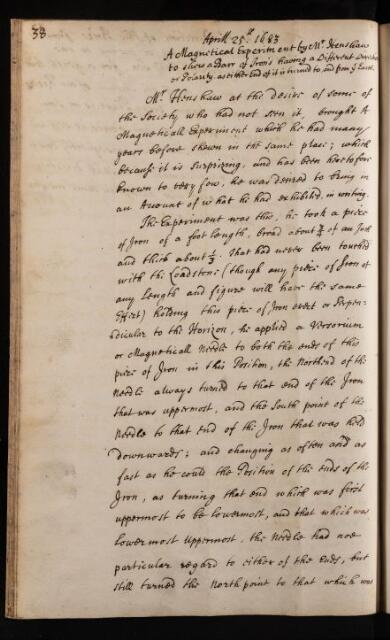 38
Aprill 25th. 1683
A Magnetical Experiment by Mr. Henshaw
to shew a Barr of Iron's having a Different Direction
or Polarity as either End of it is turned to and from ye Earth.
Mr. Henshaw at the desire of some of
the Society who had not seen it, brought A
Magneticall Experiment which he had many
years before shewn in the same place; which
because it is surprizing, and has been heretofore
known to very few, he was desired to bring in
an Account of what he had exhibited, in writing.
The Experiment was this, he took a piece
of Iron of a foot length, broad about ¾ of an Inch
and thick about ½. that had never been touched
with the Loadstone (though any piece of Iron of
any Length and figure will have the same
Effect) holding this piece of Iron erect or Perpen-
dicular to the Horizon, he applied a Versorium
or Magneticall Needle to both the ends of this
piece of Iron in this Position, the North end of the
Needle always turned to that end of the Iron
that was uppermost, and the South point of the
Needle to that end of the Iron that was held
downwards; and changing as often and as
fast as he could the Position of the ends of the
Iron, as turning that end which was first
uppermost to be lowermost, and that which was
Lowermost Uppermost, the Needle had noe
particular regard to either of the ends, but
still turned the North point to that which was